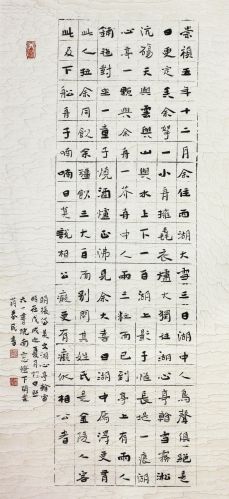 崇禎五年十二月余住西湖大雪三日湖中人鳥聲俱絕是
日更定矣余拏一小舟擁毳衣爐火獨往湖心亭看霧凇
沆碭天與雲與山與水上下一白湖上影子惟長堤一痕湖
心亭一點與余舟一芥舟中人兩三粒而已到亭上有兩人
鋪氈對坐一童子燒酒爐正沸見余大喜曰湖中焉得更有
此人拉余同飲余強飲三大白而別問其姓氏是金陵人客
此及下船舟子喃喃曰莫說相公癡更有癡似相公者
明張岱美文湖心亭看雪
時在戊戌之夏月於
六一書院南窗燈下
書